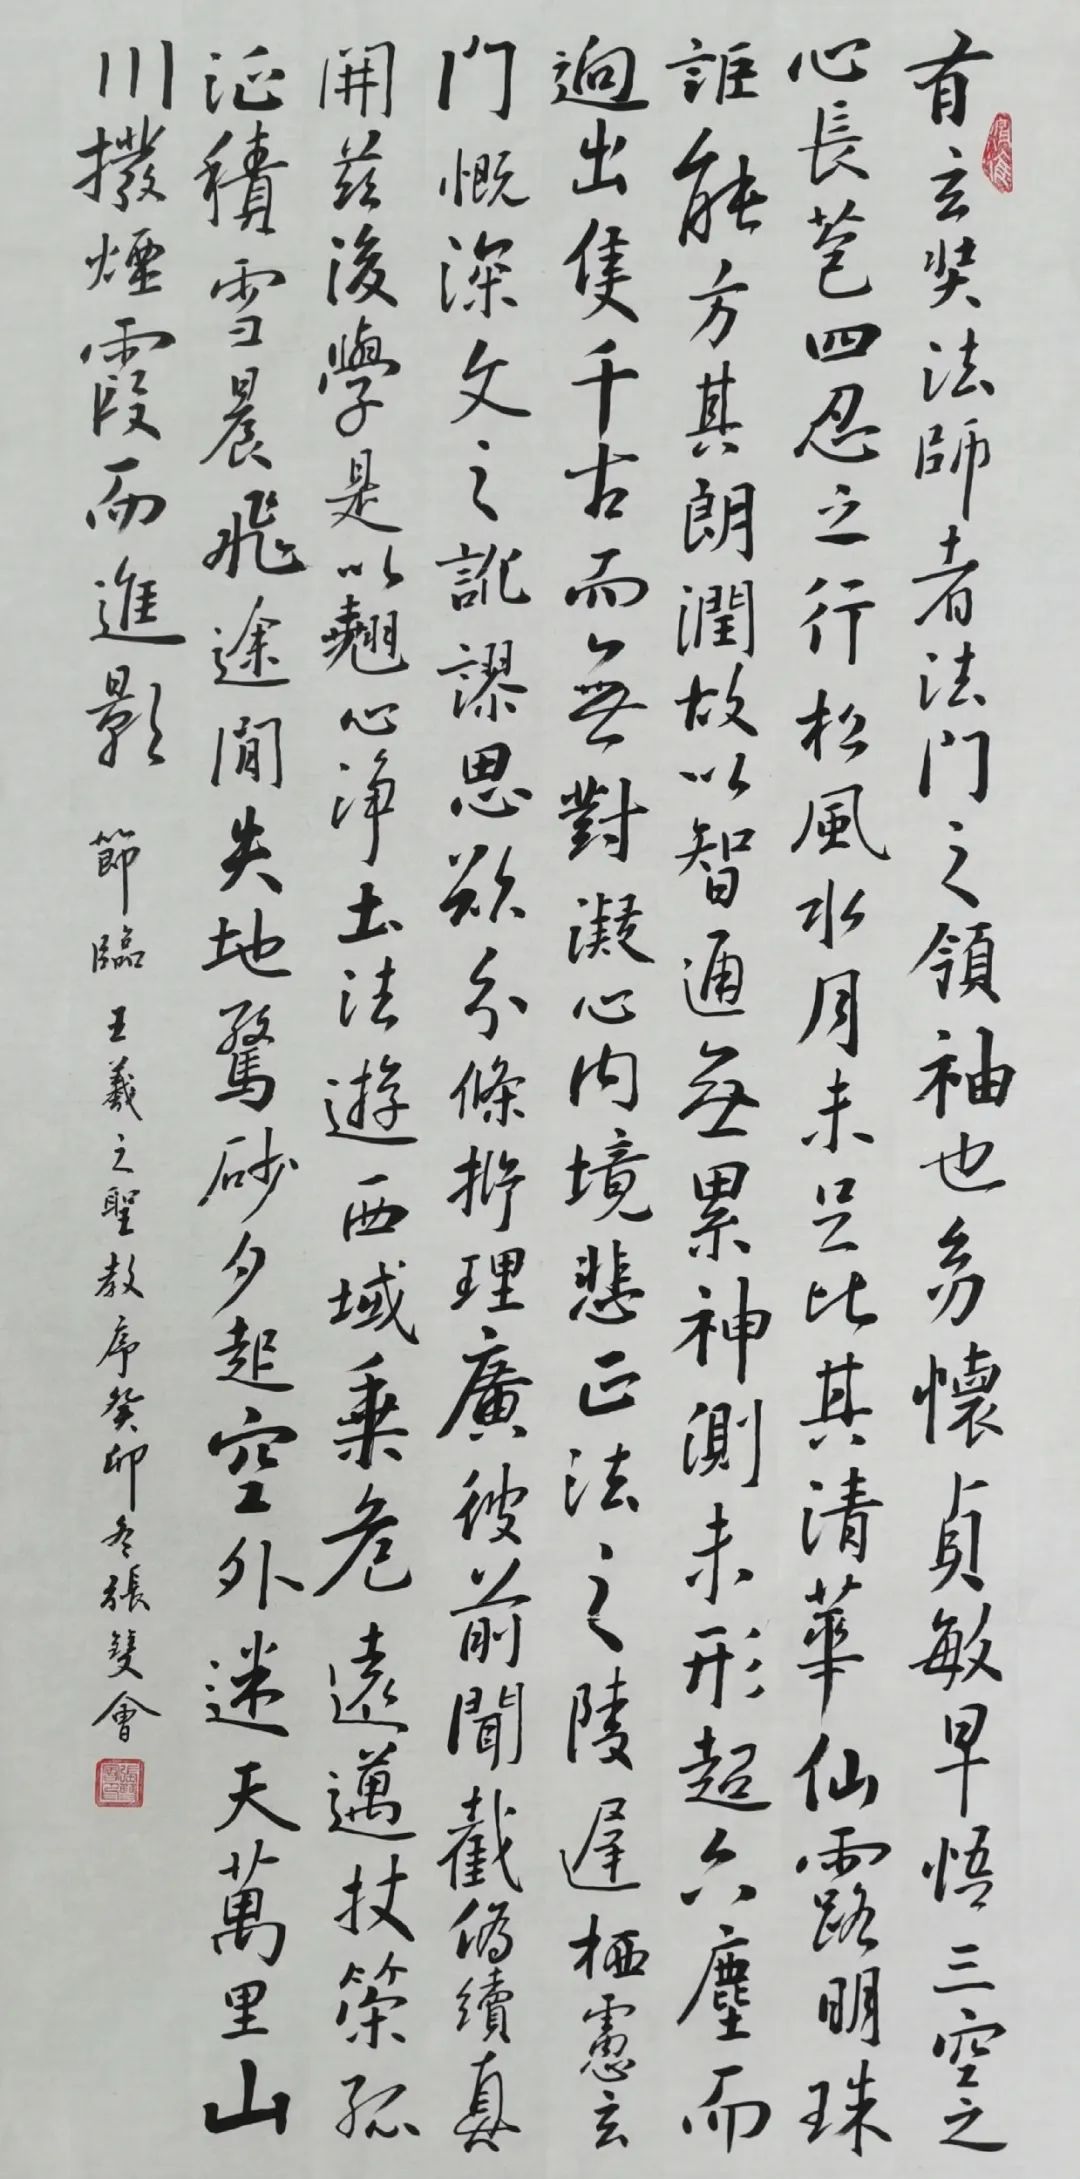 有玄奘法師者法門之領袖也幼懷貞敏早悟三空之
心長苞四忍之行松風水月未足比其清華仙露明珠
詎能方其朗潤故以智通無累神測未形超六塵而
迥出隻千古而無對凝心內境悲正法之陵遲栖慮玄
門慨深文之訛謬思欲分條析理廣彼前聞截偽續真
開茲後學是以翹心淨土法遊西域乘危遠邁杖策孤
征積雪晨飛途閒失地驚砂夕起空外迷天萬里山
川撥煙霞而進影 節臨王羲之聖教序癸卯冬張雙會